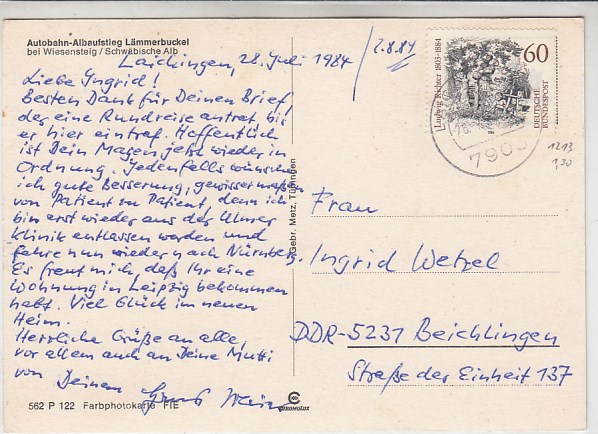 Autobahn-Albaufstieg Lämmerbuckel
bei Wiesensteig / Schwäbische Alb
Laichingen, 28. Juli 1984
2.8.84
Liebe Ingrid!
Besten Dank für Deinen Brief,
der eine Rundreise antrat bis
er hier eintraf. Hoffentlich
ist Dein Magen jetzt wieder in
Ordnung. Jedenfalls wünsche
ich gute Besserung, gewissermaßen
von Patient zu Patient, denn ich
bin erst wieder aus der Ulmer
Klinik entlassen worden und
fahre nun wieder nach Nürnberg.
Es freut mich, daß Ihr eine
Wohnung in Leipzig bekommen
habt. Viel Glück im neuen
Heim.
Herzliche Grüße an alle,
vor allem auch an Deine Mutti
von Deinem
562 P 122 Farbphotokarte FIE
Gebr. Metz, Tübingen
CHROMOLUX
Ludwig Richter 1803-1884
60
DEUTSCHE
BUNDESPOST
790
1213
1,30
Frau
Ingrid Wetzel
DDR-5231 Beichlingen
Straße der Einheit 137